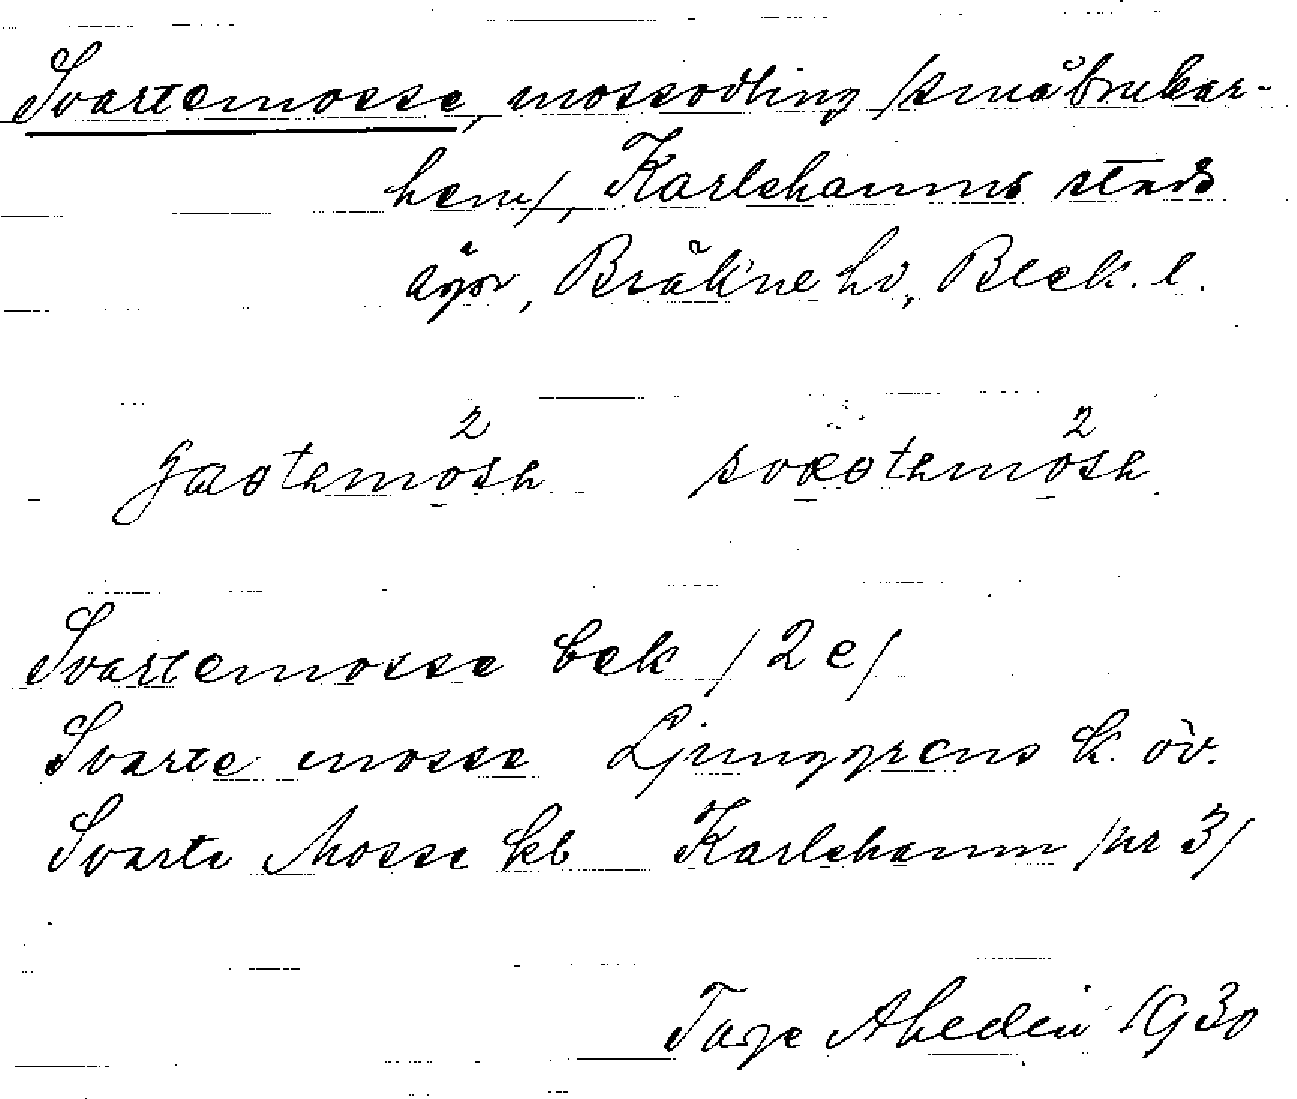 Svartemosse, mossodling /småbrukar-
hem/, Karlshamns stads
ägor, Bräkne hd, Blek. l.
Svartemosse bek /2 e/
Svarte mosse Ljunggrens k. öv.
Svarte Mosse kb Karlshamn /nr 3/
Tage Ahedin 1930